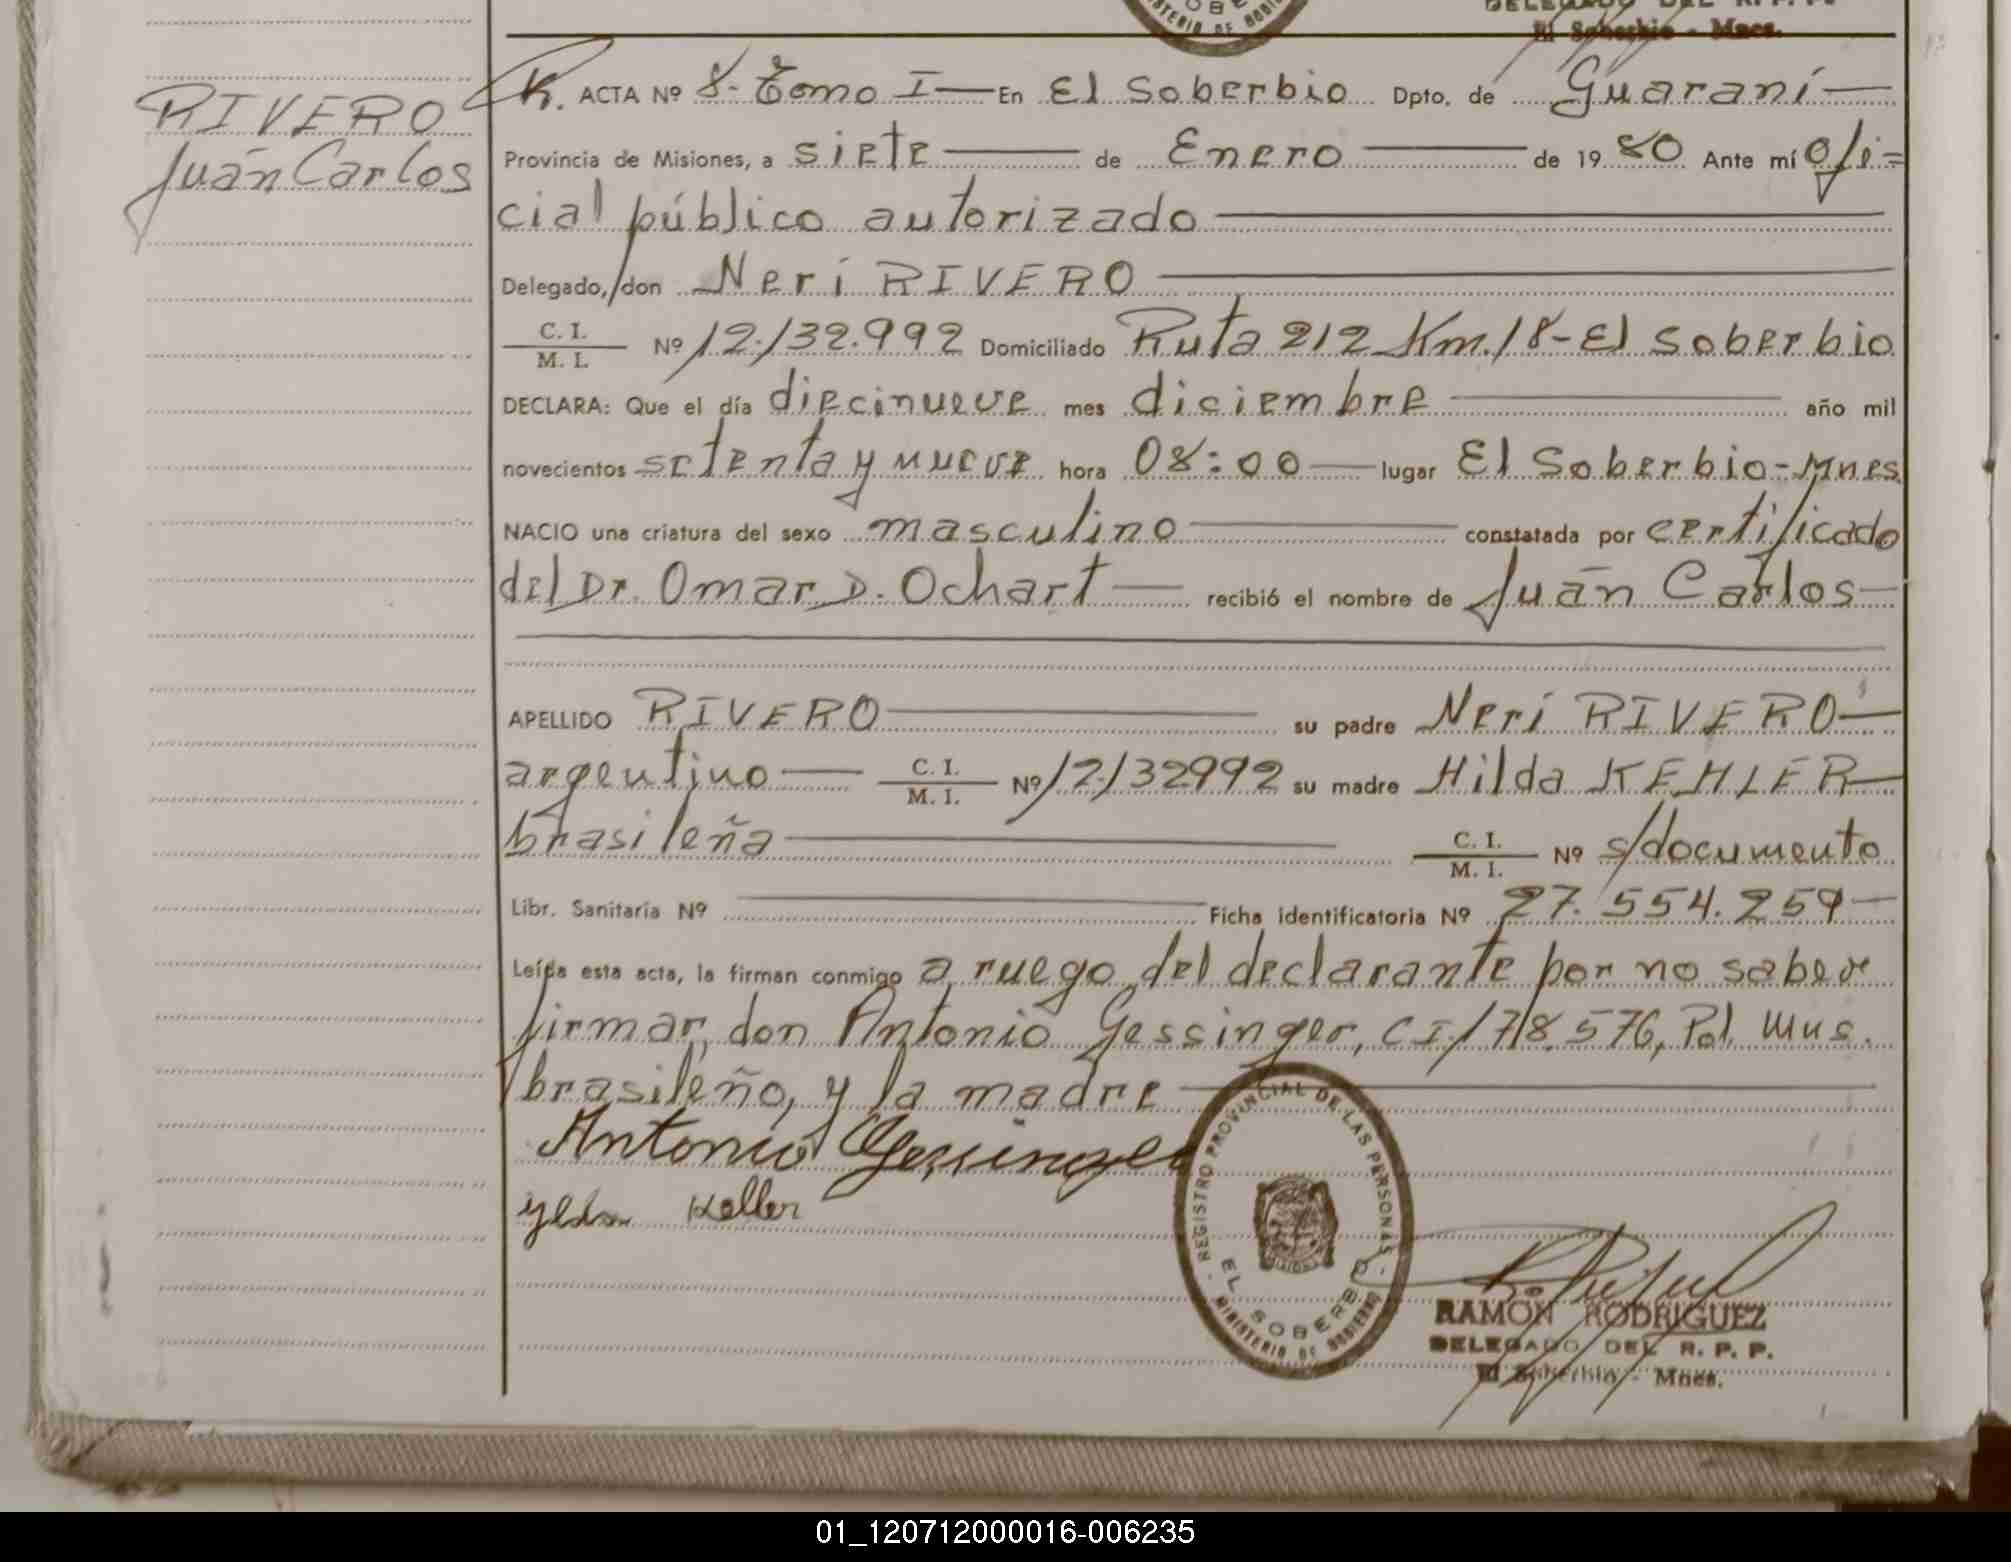 SOBE
MINISTERIO DE GOBIE
DELEGADO DEL R. P. P.
El Soberbio - Mnes.
RIVERO
Juán Carlos
R. ACTA Nº 8- Tomo I — En El Soberbio Dpto. de Guaraní —
Provincia de Misiones, a siete — de Enero — de 1980 Ante mí ofi=
cial público autorizado —
Delegado, don Neri RIVERO —
C. I.
M. I. Nº 12.132.992 Domiciliado Ruta 212 Km.18-El Soberbio
DECLARA: Que el día diecinueve mes diciembre — año mil
novecientos setenta y nueve hora 08:00 — lugar El Soberbio-Mnes
NACIO una criatura del sexo masculino — constatada por certificado
del Dr. Omar D. Ochart — recibió el nombre de Juán Carlos —
APELLIDO RIVERO — su padre Neri RIVERO —
argentino — C. I.
M. I. Nº 12.132992 su madre Hilda KEHLER —
brasileña — C. I.
M. I. Nº s/documento
Libr. Sanitaria Nº — Ficha identificatoria Nº 27.554.259 —
Leída esta acta, la firman conmigo a ruego del declarante por no saber
firmar, don Antonio Gessinger, CI.178.576, Pol. Mns.
brasileño, y la madre —
Antonio Gessinger
Keller
REGISTRO PROVINCIAL DE LAS PERSONAS
MISIONES
EL SOBERBIO
MINISTERIO DE GOBIERNO
RAMÓN RODRIGUEZ
DELEGADO DEL R. P. P.
El Soberbio - Mnes.
01_120712000016-006235